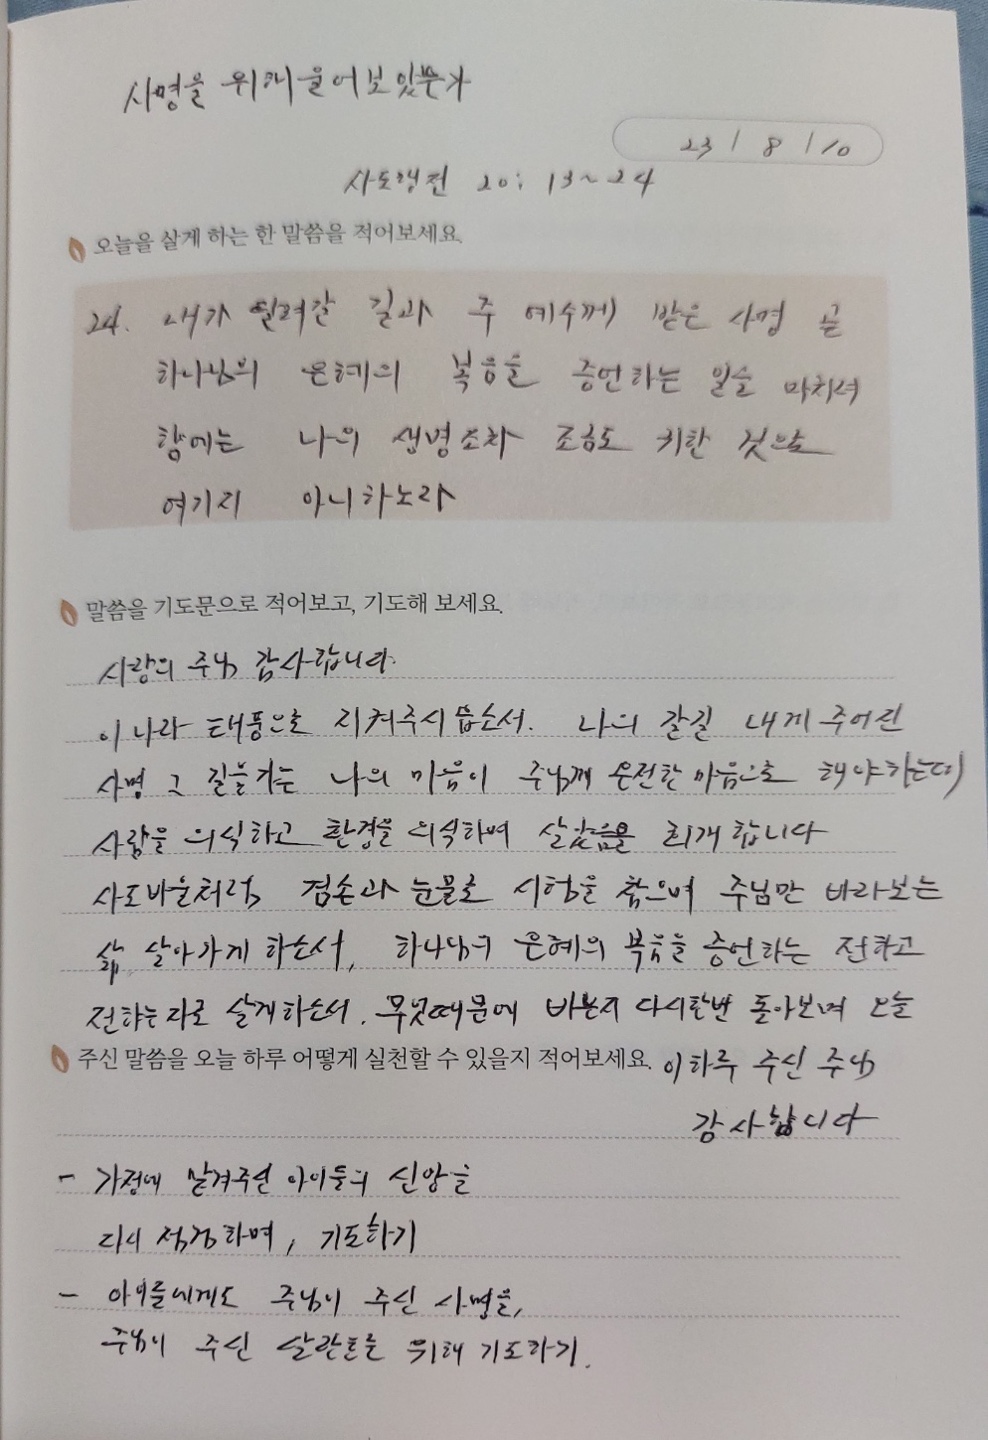 사명을 위해 울어 보았는가
23 / 8 / 10
사도행전 20: 13~24
오늘을 살게 하는 한 말씀을 적어보세요.
24. 내가 달려갈 길과 주 예수께 받은 사명 곧
하나님의 은혜의 복음을 증언하는 일을 마치려
함에는 나의 생명조차 조금도 귀한 것으로
여기지 아니하노라
말씀을 기도문으로 적어보고, 기도해 보세요.
사랑의 주님 감사합니다.
이 나라 태풍으로 지켜주시옵소서. 나의 갈길 내게 주어진
사명 그 길을 가는 나의 마음이 주님께 온전한 마음으로 해야하는데
사람을 의식하고 환경을 의식하며 살았음을 회개합니다
사도바울처럼 겸손과 눈물로 시험을 참으며 주님만 바라보는
삶 살아가게 하소서, 하나님의 은혜의 복음을 증언하는 전하고
전하는 자로 살게하소서. 무엇때문에 바쁜지 다시한번 돌아보며 오늘
주신 말씀을 오늘 하루 어떻게 실천할 수 있을지 적어보세요. 이하루 주신 주님
감사합니다
- 가정에 맡겨주신 아이들의 신앙을
다시 점검하며, 기도하기
- 아이들에게도 주님이 주신 사명을,
주님이 주신 달란트를 위해 기도하기.